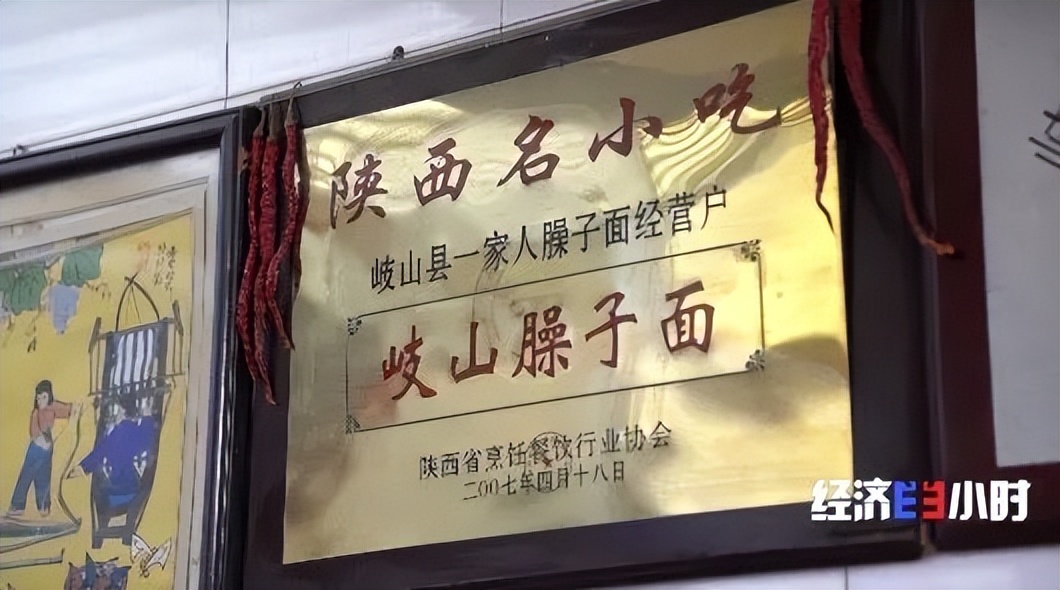 陕西名小吃
岐山县一家人臊子面经营户
岐山臊子面
陕西省烹饪餐饮行业协会
二00七年四月十八日
经济小时